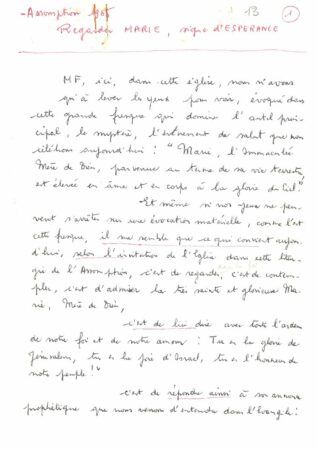 - Assomption 13 1
Regarder MARIE, signe d'ESPERANCE
MF, ici, dans cette église, nous n'avons
qu'à lever les yeux pour voir, évoqué dans
cette grande fresque qui domine l'autel prin-
cipal, le mystère, l'évènement de salut que nous
célébrons aujourd'hui : "Marie, l'Immaculée
Mère de Dieu, parvenue au terme de sa vie terrestre,
est élevée en âme et en corps à la gloire du Ciel."
Et même si nos yeux ne peu-
vent s'arrêter sur une évocation matérielle, comme l'est
cette fresque, il me semble que ce qui convient aujour-
d'hui, selon l'invitation de l'Eglise dans cette litur-
gie de l'Assomption, c'est de regarder, c'est de contem-
pler, c'est d'admirer la très sainte et glorieuse Ma-
rie, Mère de Dieu,
c'est de lui dire avec toute l'ardeur
de notre foi et de notre amour : Tu es la gloire de
Jérusalem, tu es la joie d'Israel, tu es l'honneur de
notre peuple !"
c'est de répondre ainsi à son annonce
prophétique que nous venons d'entendre dans l'évangile :